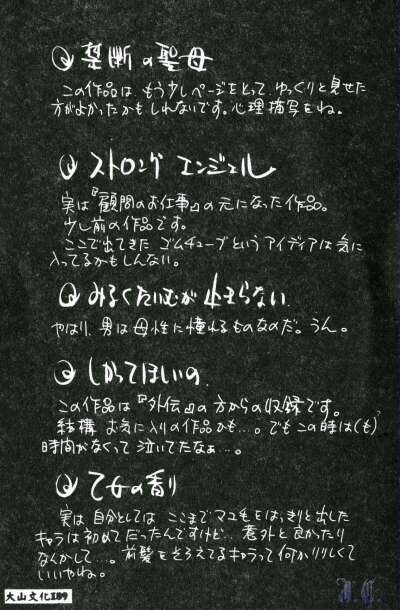 禁断の聖母
この作品は、もう少しページをとって、ゆっくりと見せた
方がよかったかもしれないです。心理描写をね。
ストロング エンジェル
実は『顧問のお仕事』の元になった作品。
少し前の作品です。
ここで出てきた ゴムチューブというアイディアは気に
入ってるかもしんない。
みるくたいむが止まらない
やはり、男は母性に憧れるものなのだ。うん。
しかってほしいの
この作品は『外伝』の方からの収録です。
結構 お気に入りの作品かも…。でもこの時は(も)
時間がなくって 泣いてたなぁ…。
乙女の香り
実は 自分としては ここまでマユ毛をはっきりと出した
キャラは初めてだったんですけど… 意外と良かったり
なんかして…。前髪をそろえてるキャラって何かりりしくて
いいやね。
大山文化189